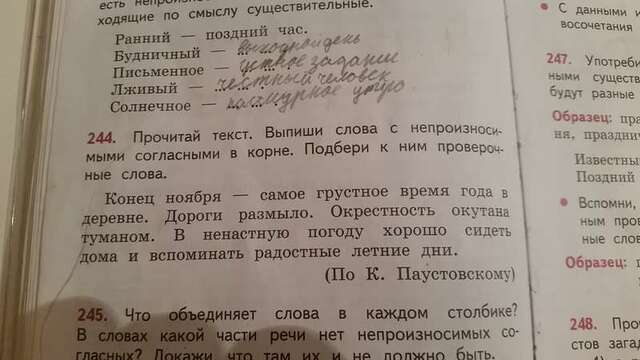 есть непроизнос
ходящие по смыслу существительные.
Ранний — поздний час.
Будничный — выходной день
Письменное — устное задание
Лживый — честный человек
Солнечное — пасмурное утро
244. Прочитай текст. Выпиши слова с непроизноси-
мыми согласными в корне. Подбери к ним провероч-
ные слова.
Конец ноября — самое грустное время года в
деревне. Дороги размыло. Окрестность окутана
туманом. В ненастную погоду хорошо сидеть
дома и вспоминать радостные летние дни.
(По К. Паустовскому)
245. Что объединяет слова в каждом столбике?
В словах какой части речи нет непроизносимых со-
гласных? Докажи, что там их и не должно быть.
• С данными и
восочетания
247. Употреби
ными сущест
будут разные
Образец: пра
ня, праздни
Известны
Поздний
• Вспомни,
ным пров
ные слов
Образец: п
248. Про
стов загад